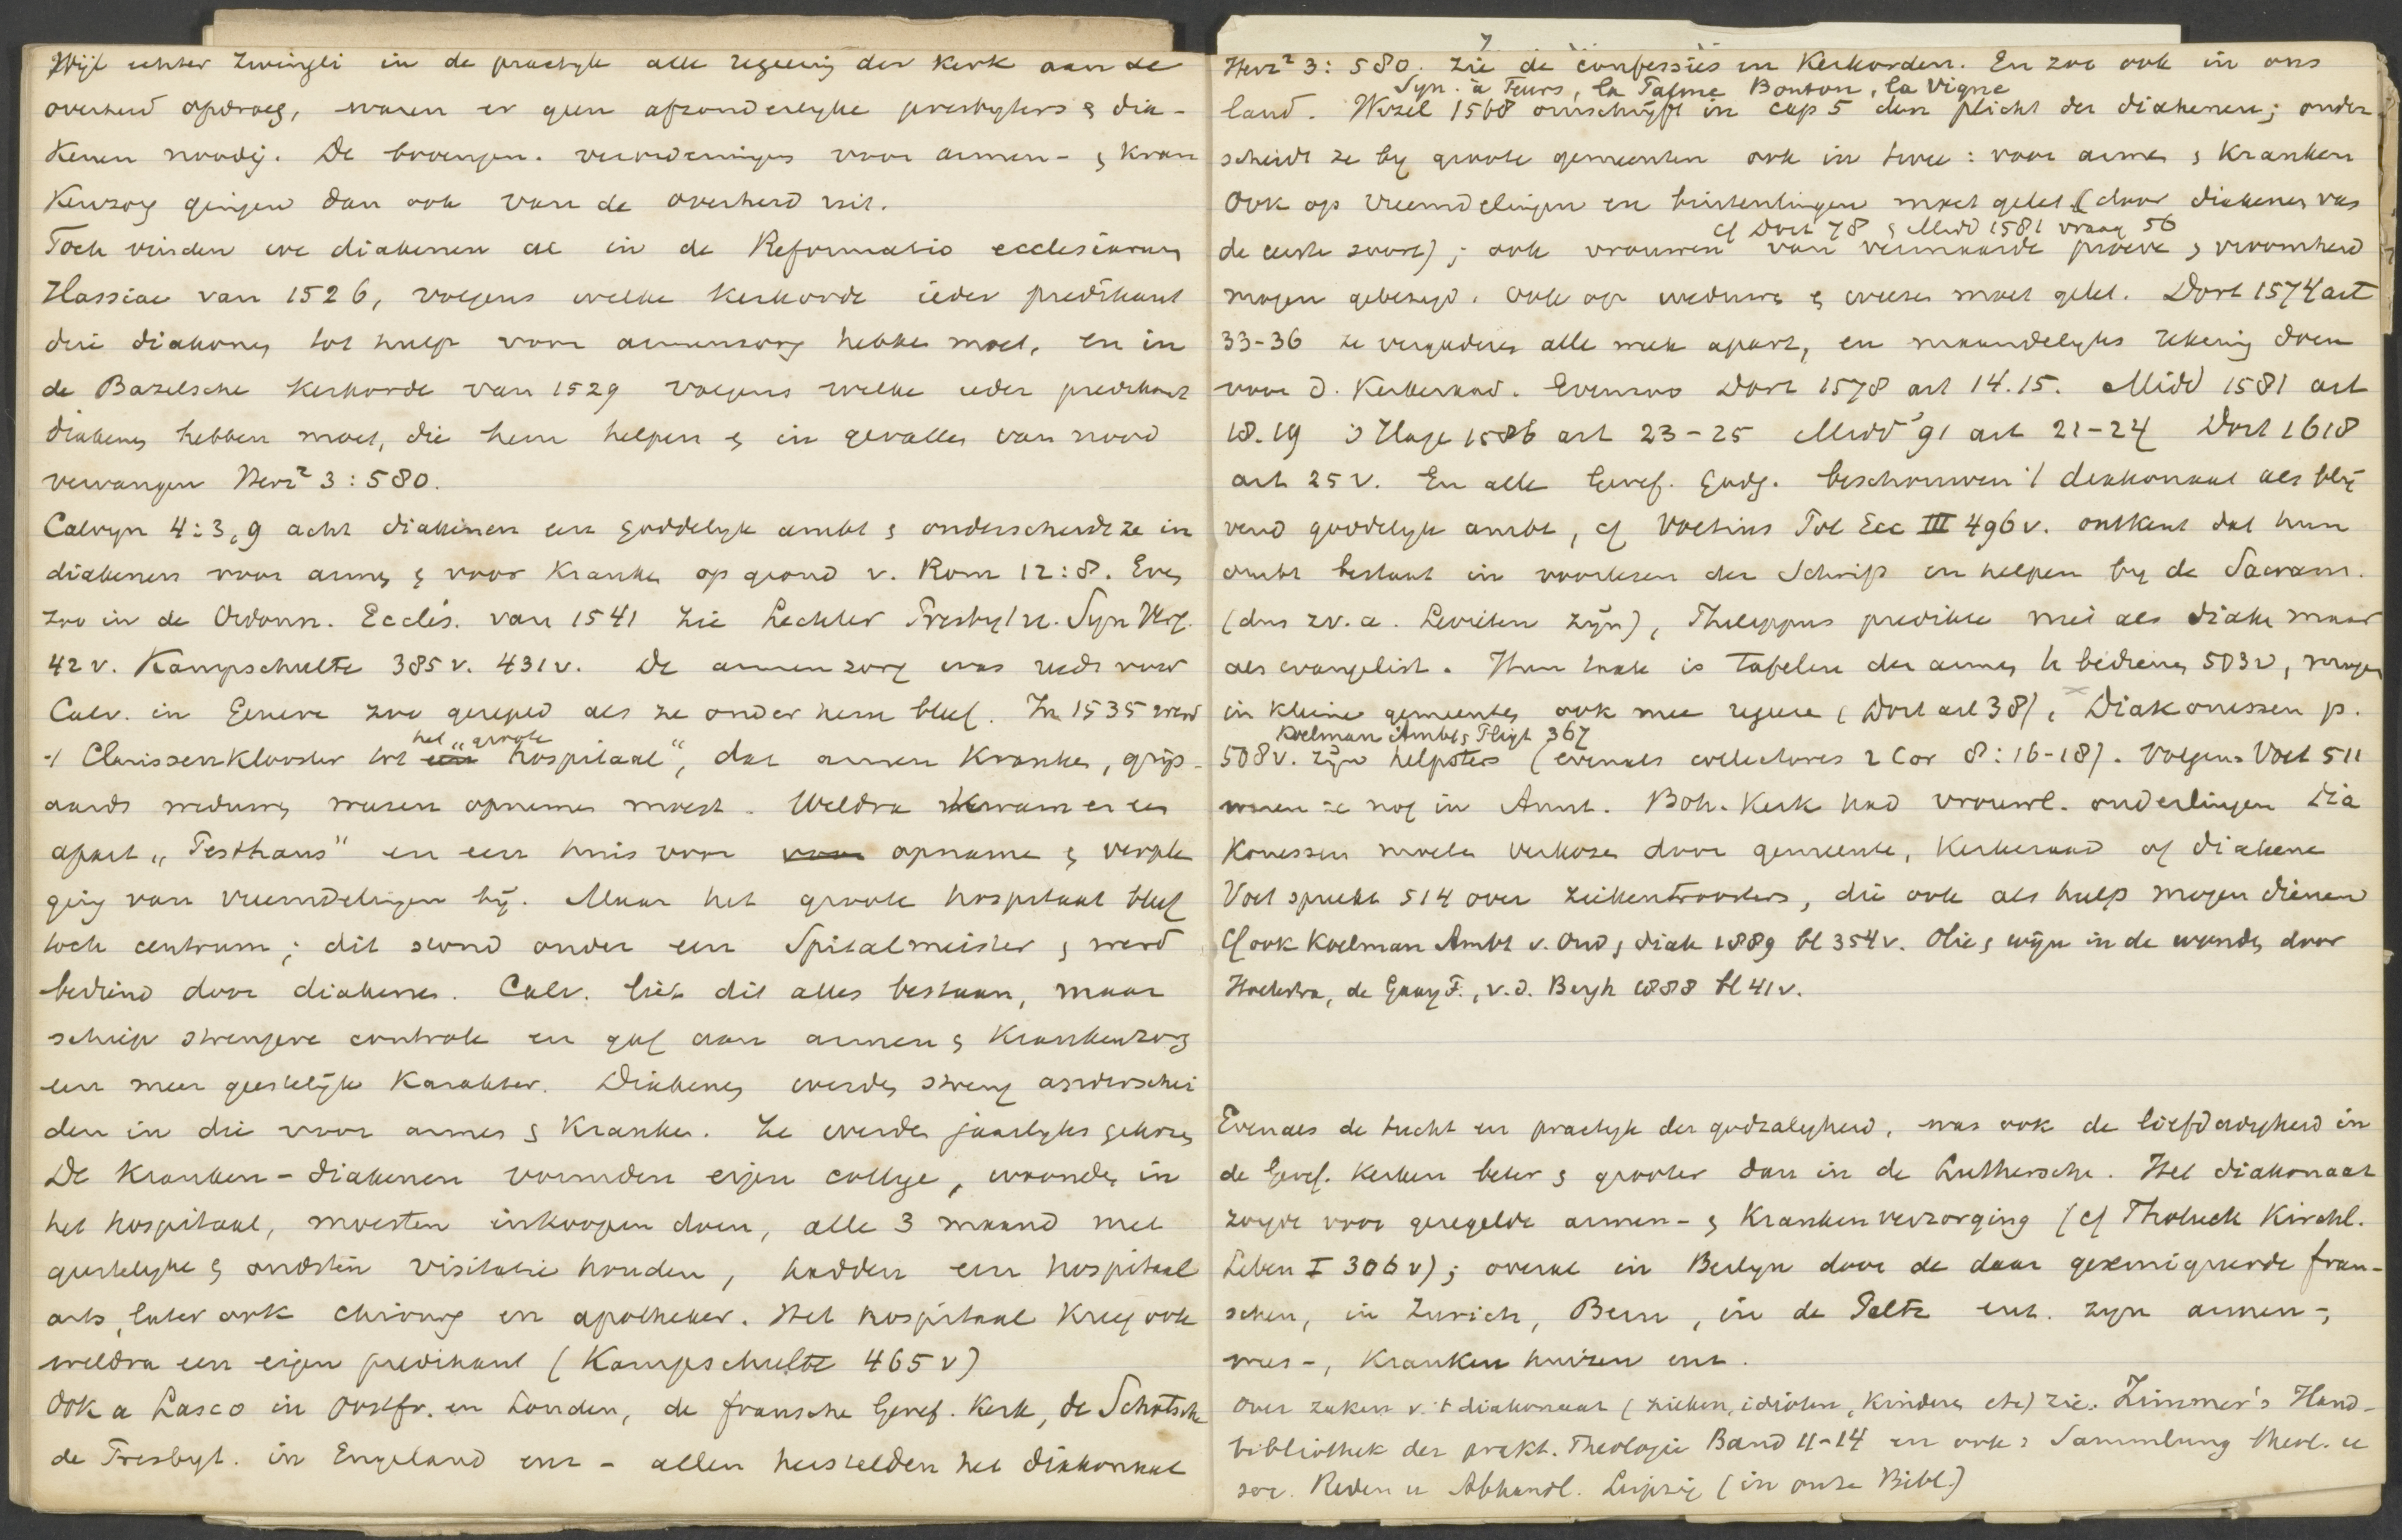 Wijl echter Zwingli in de practyk alle regeering der kerk aan de
overheid opdroeg, waren er geen afzonderlyke presbyters & dia-
kenen noodig. De verordeningen voor armen- & kran
kenzorg gingen dan ook van de overheid uit.
Toch vinden we diakenen al in de Reformatio ecclesiarum
Hassiae van 1526, volgens welke kerkorde ieder predikant
drie diakenen tot hulp voor armenzorg hebben moet, en in
de Bazelsche kerkorde van 1529 volgens welke ieder predikant
diakenen hebben moet, die hem helpen & in gevallen van nood
vervangen Herz² 3:580.
Calvyn 4:3,9 acht diakenen een goddelyk ambt & onderscheidt ze in
diakenen voor armen & voor kranken op grond v. Rom 12:8. Even
zoo in de Ordonn. Eccles. van 1541 zie Lechler Presbyt u. Syn Verf.
42v. Kampschulte 385v. 431v. De armenzorg was reeds voor
Calv. in Geneve zoo geregeld als ze onder hem bleef. In 1535 werd
't Clarissenklooster tot een het "groote hospitaal", dat armen kranken, grijs-
aards weduwen weezen opnemen moest. Weldra kwam er een
apart "Pesthaus" en een huis voor voor opname & verple
ging van vreemdelingen bij. Maar het groote hospitaal bleef
toch centrum; dit stond onder een Spitalmeister & werd
bediend door diakenen. Calv. liet dit alles bestaan, maar
schiep strengere controle en gaf aan armen & krankenzorg
een meer geestelijk karakter. Diakenen werden streng onderschei
den in die voor armen & kranken. Ze werden jaarlyks gekozen
De kranken-diakenen vormden eigen college, woonden in
het hospitaal, moesten inkoopen doen, alle 3 maand met
geestelyke & oudsten visitatie houden, hadden een hospitaal
arts, later ook chirurg en apotheker. Het hospitaal kreeg ook
weldra een eigen predikant (Kampschulte 465v)
Ook a Lasco in Oostfr. en Londen, de fransche Geref. Kerk, de Schotsche
de Presbyt. in Engeland enz - allen herstelden het diakonaat
Herz² 3:580. Zie de confessies en Kerkorden. En zoo ook in ons
Syn. à Feurs, la Palme Bonton, la Vigne
land. Wezel 1568 omschrijft in cap 5 den plicht der diakenen; onder
scheidt ze by groote gemeenten ook in twee: voor armen & kranken
Ook op vreemdelingen en buitenlingen moet gelet (door diakenen van
cf Dort 78 & Midd 1581 vraag 56
de eerste soort); ook vrouwen van vermaarde proeve & vroomheid
mogen gebezigd. Ook op weduwen & weezen moet gelet. Dort 1574 art
33-36 ze vergaderen alle week apart, en maandelyks rekening doen
voor d. Kerkeraad. Evenzoo Dort 1578 art 14.15. Midd 1581 art
18.19 's Hage 1586 art 23-25 Midd '91 art 21-24 Dort 1618
art 25v. En alle Geref. Godg. beschouwen 't diakonaat als blij
vend goddelyk ambt, cf Voetius Pol Ecc III 496v. ontkent dat hun
ambt bestaat in voorlezen der Schrift en helpen by de Sacram.
(dus zv. a. Levieten zijn), Philippus predikte niet als diaken maar
als evangelist. Hun taak is tafelen der armen te bedienen 503v, mogen
in kleine gemeenten ook mee regeeren (Dort art 38), Diakonessen p.
Koelman Ambt & Pligt 367
508v. zijn helpsters (evenals collectores 2 Cor 8:16-18). Volgens Voet 511
waren ze nog in Amst. Boh. Kerk had vrouwl. ouderlingen Dia
konessen moeten verkozen door gemeente, Kerkeraad of diakene
Voet spreekt 514 over ziekentroosters, die ook als hulp mogen dienen
Cf ook Koelman Ambt v. Oud & diak 1889 bl 354v. Olie & wijn in de wonden, door
Hoekstra, de Gaay F., v.d. Bergh 1888 bl 41v.
Evenals de tucht en practyk der godzaligheid, was ook de liefdadigheid in
de Geref. Kerken beter & grooter dan in de Luthersche. Het diakonaat
zorgde voor geregelde armen- & krankenverzorging (cf Tholuck Kirchl.
Leben I 306v); overal in Berlyn door de daar geremigreerde fran-
schen, in Zurich, Bern, in de Paltz enz. zyn armen-,
wees-, krankenhuizen enz.
Over zaken v. 't diakonaat (zieken, idioten, kinderen etc) zie: Zimmer's Hand-
bibliothek der prakt. Theologie Band 11-14 en ook: Sammlung theol. u
soc. Reden u Abhandl. Leipzig (in onze Bibl.)